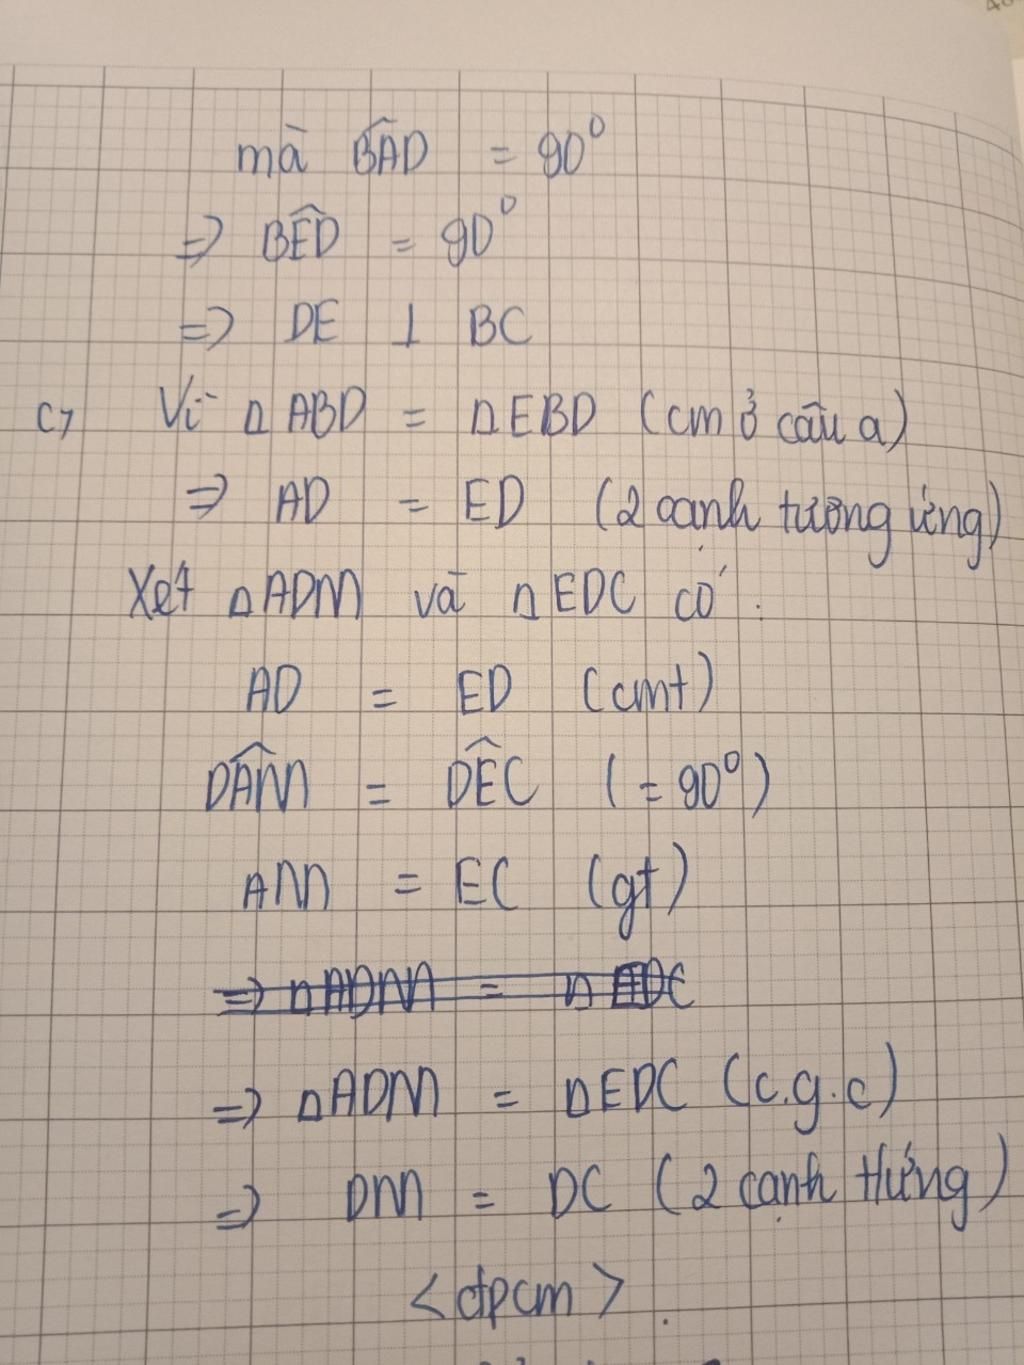 mà BÂD = 90⁰
=> BÊD = 90⁰
=> DE ⊥ BC
c, Vì ΔABD = ΔEBD (cm ở câu a)
=> AD = ED (2 cạnh tương ứng)
Xét ΔADM và ΔEDC có :
AD = ED (cmt)
DÂM = DÊC (= 90⁰)
AM = EC (gt)
=> ΔADM = ΔEDC
=> ΔADM = ΔEDC (c.g.c)
=> DM = DC (2 cạnh tứng)
<đpcm> .